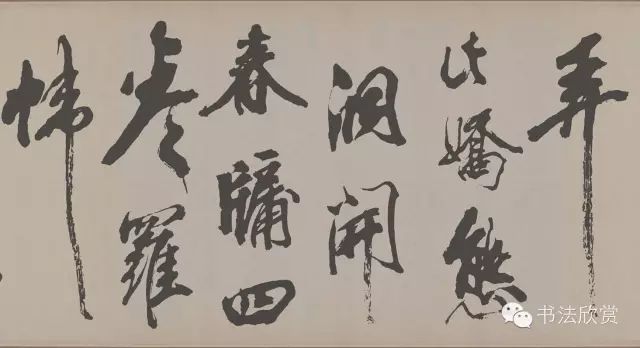 弄
此嬌態
洞開
春牖四
卷羅
幃
书法欣赏